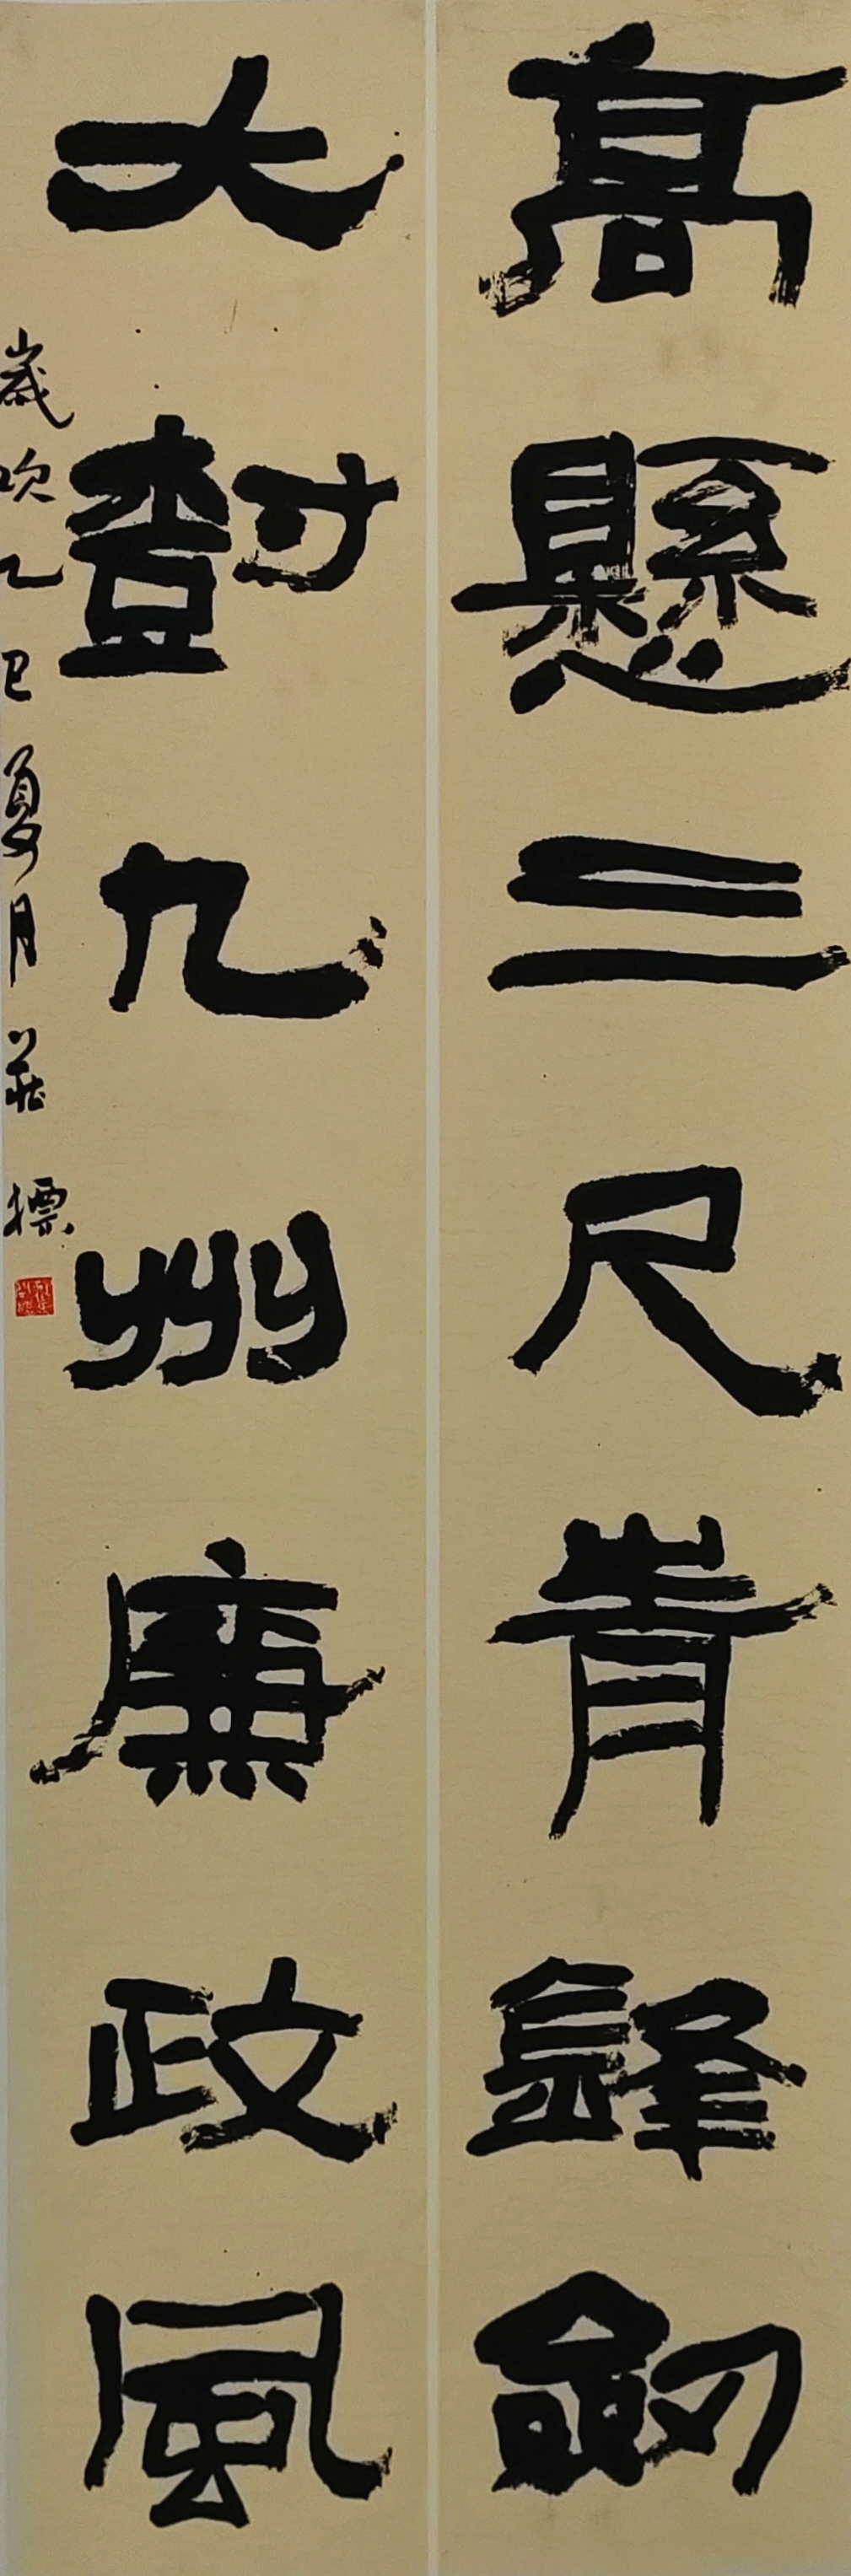 高懸三尺青鋒劔
大樹九州廉政風
歲次乙巳夏月莊標